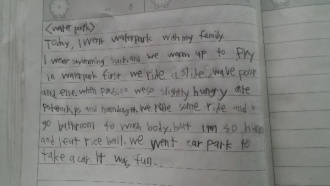 <water park>
Today, I went waterpark with my family.
I wear swimming suit, and we warm up to play
in waterpark first we ride a slide, wave pool
and else, when passion we so slightly hungry ate
potatochips and we ride some ride and
go bathroom to wash body, but I'm so
and I eat rice ball, we went car park to
take a car. It was fun.